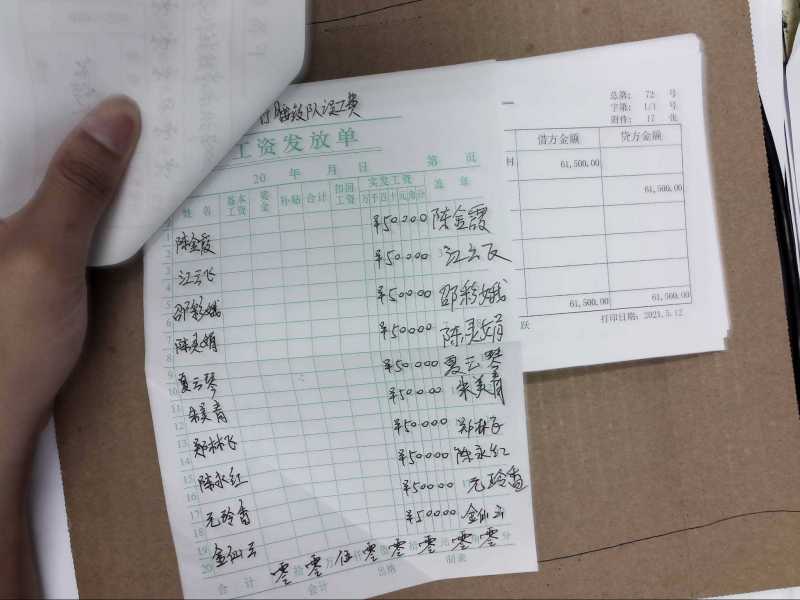 腰鼓队误工费
工资发放单
20 年 月 日 第 页
姓名 基本工资 奖金 补贴 合计 扣回工资 实发工资 盖章
万千百十元角分
陈金霞 ¥500.00 陈金霞
江云飞 ¥500.00 江云飞
邵彩娥 ¥500.00 邵彩娥
陈灵娟 ¥500.00 陈灵娟
夏云琴 ¥500.00 夏云琴
朱美青 ¥500.00 朱美青
郑林飞 ¥500.00 郑林飞
陈永红 ¥500.00 陈永红
元玲香 ¥500.00 元玲香
金仙云 ¥500.00 金仙云
合计 零拾零万伍仟零佰零拾零元零角零分
会计 出纳 制表
总第: 72 号
字第: 1/1 号
附件: 17 张
借方金额 贷方金额
村 61,500.00
61,500.00
61,500.00 61,500.00
跃 打印日期: 2021.5.12